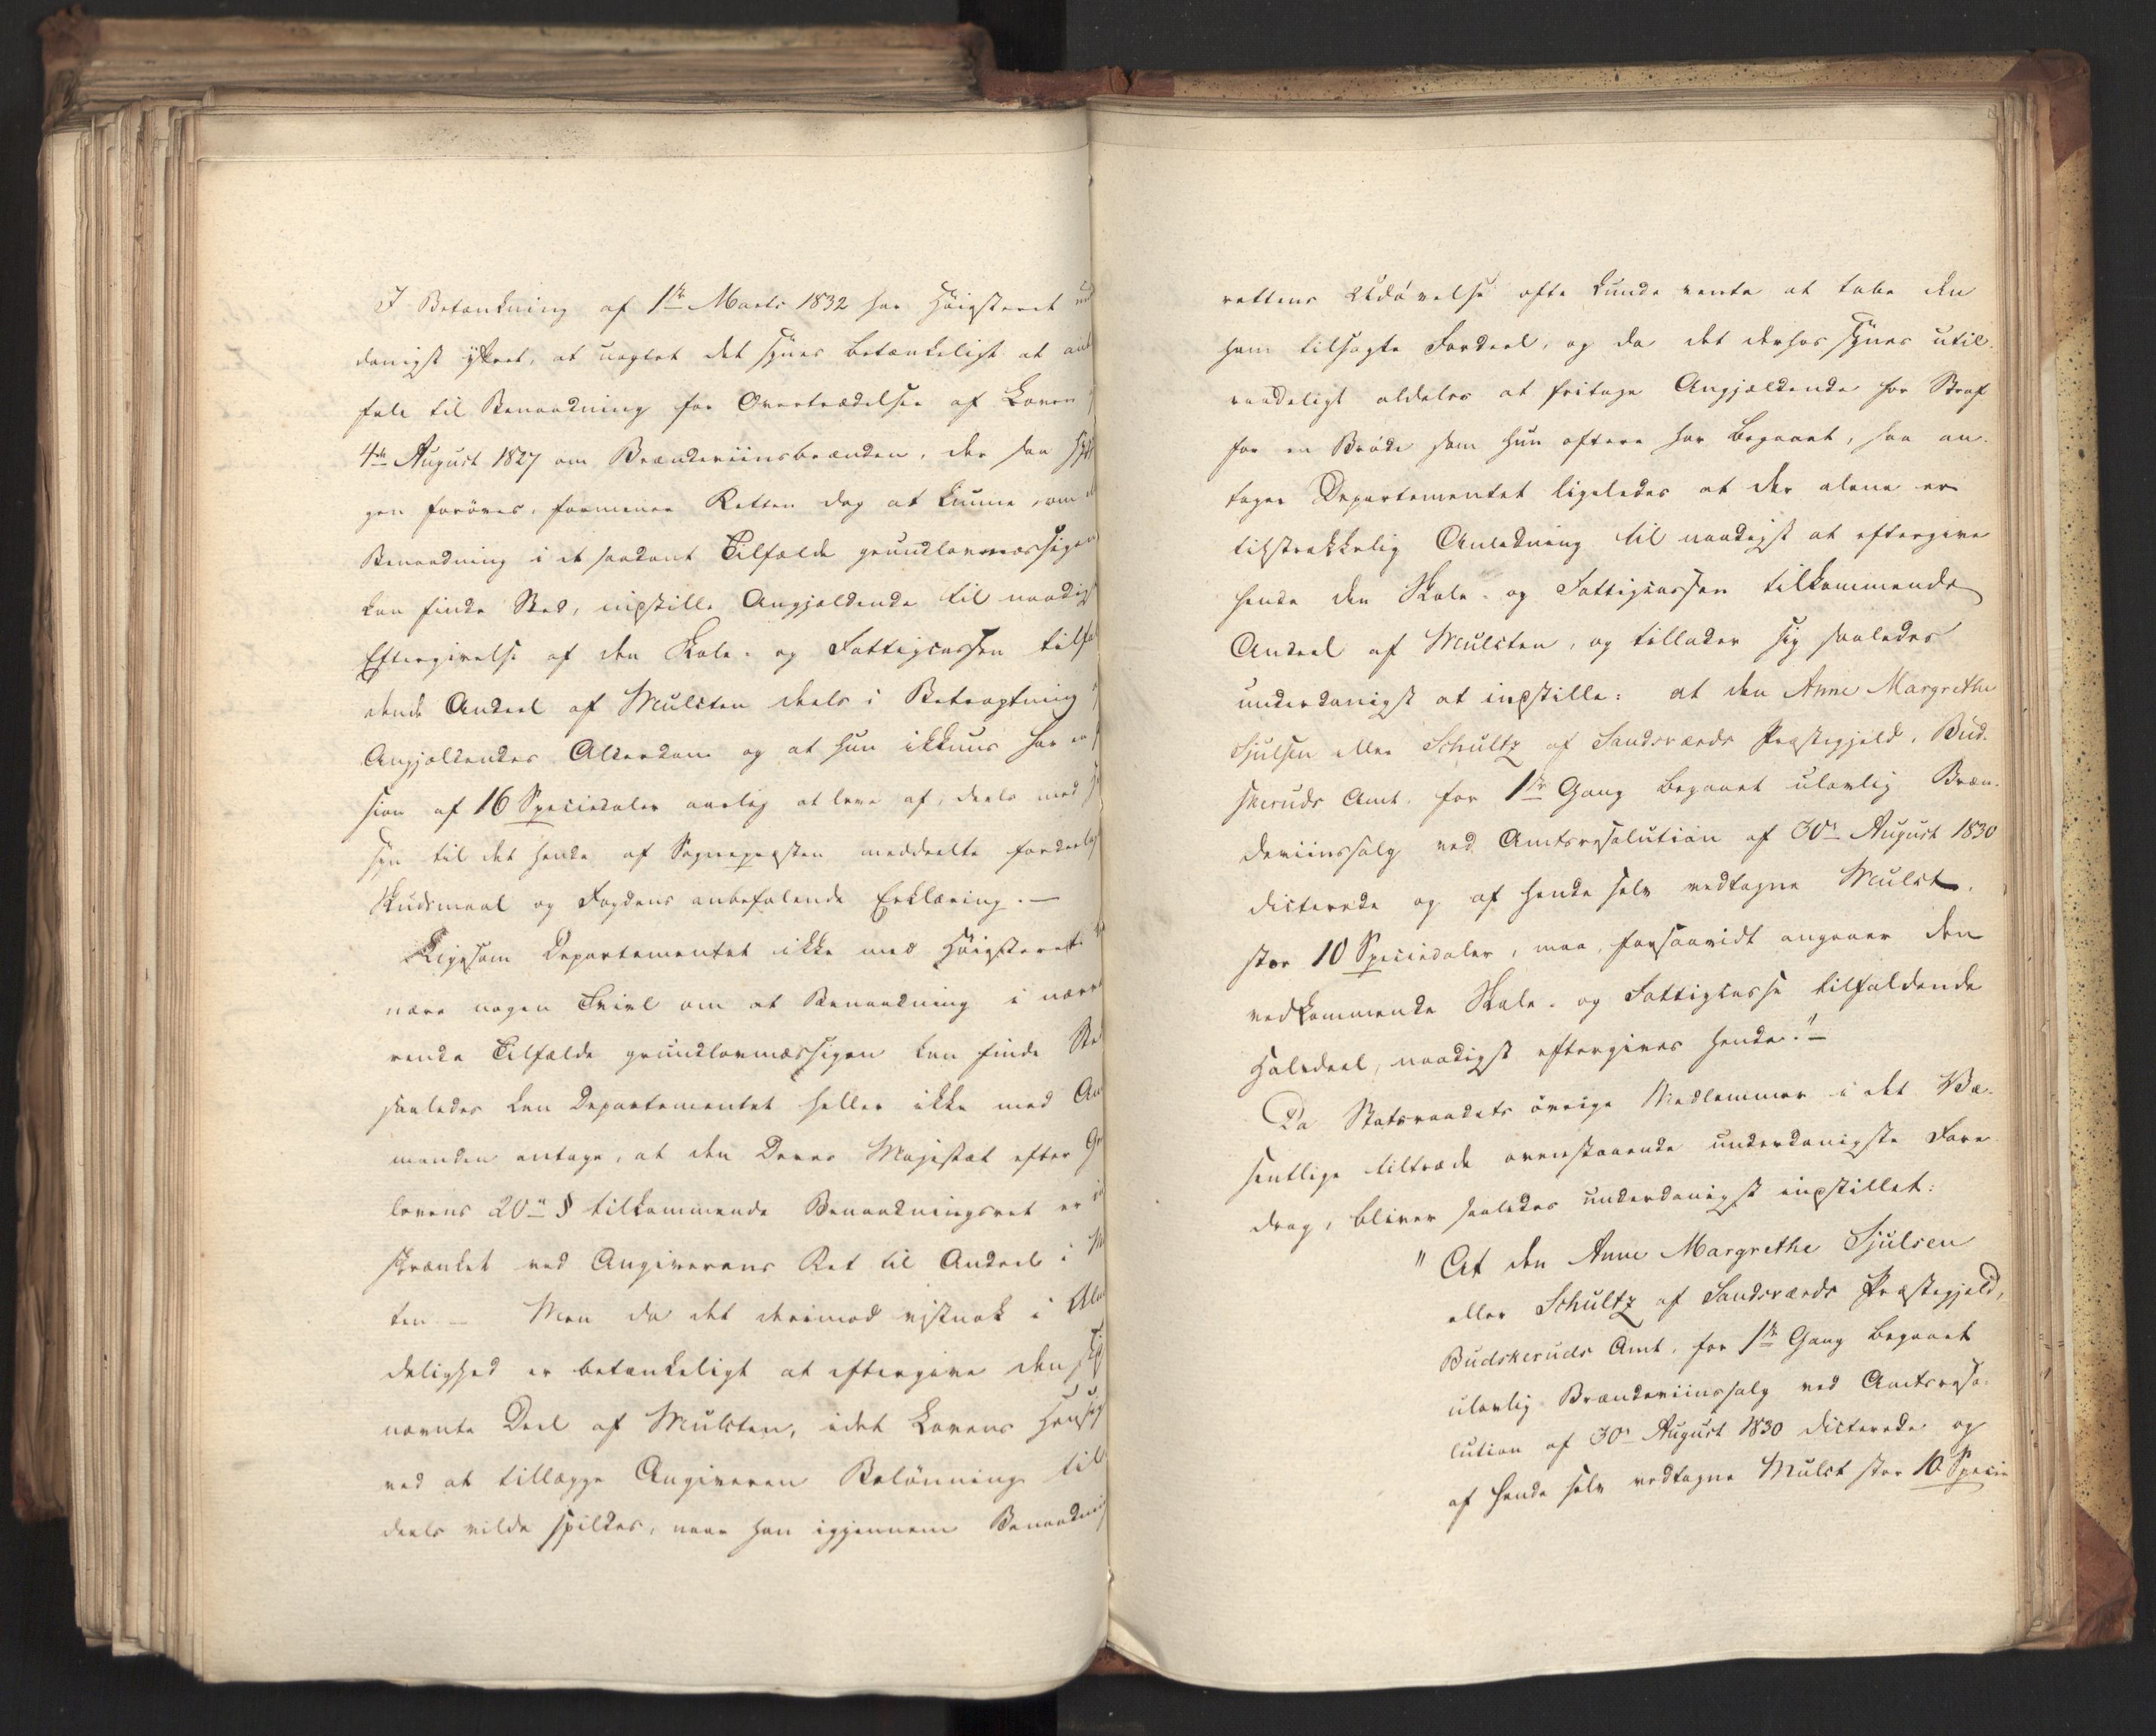 I Betænkning af 1ste Marts 1832 har Høiesteret un
danigst yttret, at uagtet det synes betænkeligt at anb
fale til Benaadning for Overtrædelser af Loven
4de August 1827 om Brændeviinsbrænden, der saa hyp
gen forøves, formener Retten dog at kunne, om
Benaadning i et saadant Tilfælde grundlovmæssigen
kan finde Sted, inpstille Angjældende til naadigs
Eftergivelse af den Skole- og Fattigcassen tilfal
dende Andeel af Mulcten deels i Betragtning
Angjældendes Alderdom og at hun ikkuns har en
sion af 16 Speciedaler aarlig at leve af, deels med
syn til det hende af Sognepræsten meddeelte fordeelag
Skudsmaal og Fogdens anbefalende Erklæring. —
Ligesom Departementet ikke med Høiesteret
nære nogen Tvivl om at Benaadning i nærv
rende Tilfælde grundlovmæssigen kan finde Ste
saaledes kan Departementet heller ikke med Am
manden antage, at den Deres Majestæt efter Gr
lovens 20de § tilkommende Benaadningsret er in
skrænket ved Angiverens Ret til Andeel i M
ten. — Men da det derimod vistnok i Alm
delighed er betænkeligt at eftergive den
nævnte Deel af Mulcten, idet Lovens Hensig
ved at tillægge Angiveren Belønning til
deels vilde spildes, naar han igjennem Benaadnin
rettens Udøvelse ofte kunde vente at tabe den
ham tilsagte Fordeel, og da det derhos synes util-
raadeligt aldeles at fritage Angjældende for Straf
for en Brøde som hun oftere har begaaet, saa an-
tager Departementet ligeledes at der alene er
tilstrækkelig Anledning til naadigst at eftergive
hende den Skole- og Fattigcassen tilkommende
Andeel af Mulcten, og tillader sig saaledes
underdanigst at inpstille: at den Anne Margrethe
Sjulsen eller Schultz af Sandsværds Præstegjeld, Bud-
skeruds Amt, for 1ste Gang begaaet ulovlig Bræn-
deviinssalg ved Amtsresolution af 30te August 1830
dicterede og af hende selv vedtagne Mulct,
stor 10 Speciedaler, maa, forsaavidt angaaer den
vedkommende Skole- og Fattigcasse tilfaldende
Halvdeel, naadigst eftergives hende." —
Da Statsraadets øvrige Medlemmer i det Væ-
sentlige tiltræde ovenstaaende underdanigste Fore
drag, bliver saaledes underdanigst inpstillet:
"At den Anne Margrethe Sjulsen
eller Schultz af Sandsværds Præstegjeld,
Budskeruds Amt, for 1ste Gang begaaet
ulovlig Brændeviinssalg ved Amtsreso-
lution af 30te August 1830 dicterede og
af hende selv vedtagne Mulct stor 10 Specie